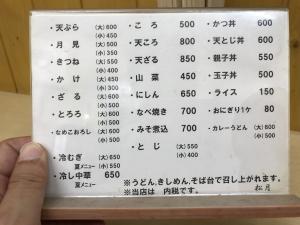 ・天ぷら (大)600
(小)450
・月見 (大)500
(小)400
・きつね (大)550
(小)440
・かけ (大)450
(小)350
・ざる (大)600
(小)500
・とろろ (大)600
(小)500
・なめこおろし (大)600
(小)500
・冷むぎ (大)650
夏メニュー (小)550
・冷し中華 650
夏メニュー
・ころ 500
・天ころ 800
・天ざる 850
・山菜 450
・にしん 650
・なべ焼き 700
・みそ煮込 700
・とじ (大)550
(小)400
・かつ丼 600
・天とじ丼 600
・親子丼 550
・玉子丼 500
・ライス 150
・おにぎり1ケ 80
・カレーうどん (大)600
(小)500
※うどん,きしめん,そば台で召し上がれます。
※当店は 内税です。 松月